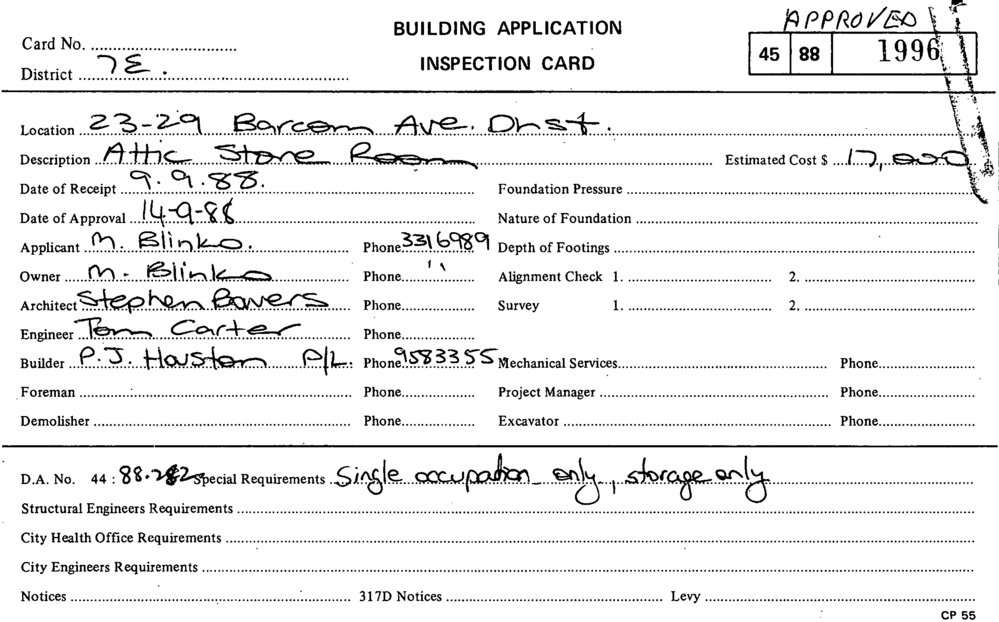 BUILDING APPLICATION
APPROVED
Card No.
INSPECTION CARD
45 88 1996
District 7E.
Location 23-29 Barcom Ave. Dhst.
Description Attic Store Room Estimated Cost $ 17,000
Date of Receipt 9.9.88. Foundation Pressure
Date of Approval 14-9-88 Nature of Foundation
Applicant M. Blinko. Phone 3316989 Depth of Footings
Owner M. Blinko Phone " Alignment Check 1. 2.
Architect Stephen Bowers Phone Survey 1. 2.
Engineer Tom Carter Phone
Builder P.J. Houston P/L. Phone 9583355 Mechanical Services Phone
Foreman Phone Project Manager Phone
Demolisher Phone Excavator Phone
D.A. No. 44 : Special Requirements Single occupation only, storage only
Structural Engineers Requirements
City Health Office Requirements
City Engineers Requirements
Notices 317D Notices Levy
CP 55